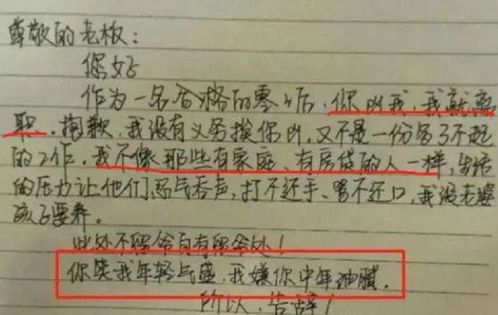 尊敬的老板：
您好
作为一名合格的零0后，你凶我，我就离
职。抱歉，我没有义务挨你凶，又不是一份多了不起
的工作，我不像那些有家庭、有房贷的人一样，生活
的压力让他们忍气吞声，打不还手、骂不还口，我没老婆
孩子要养。
此处不留爷自有留爷处！
你笑我年轻气盛，我嫌你中年油腻。
所以，告辞！